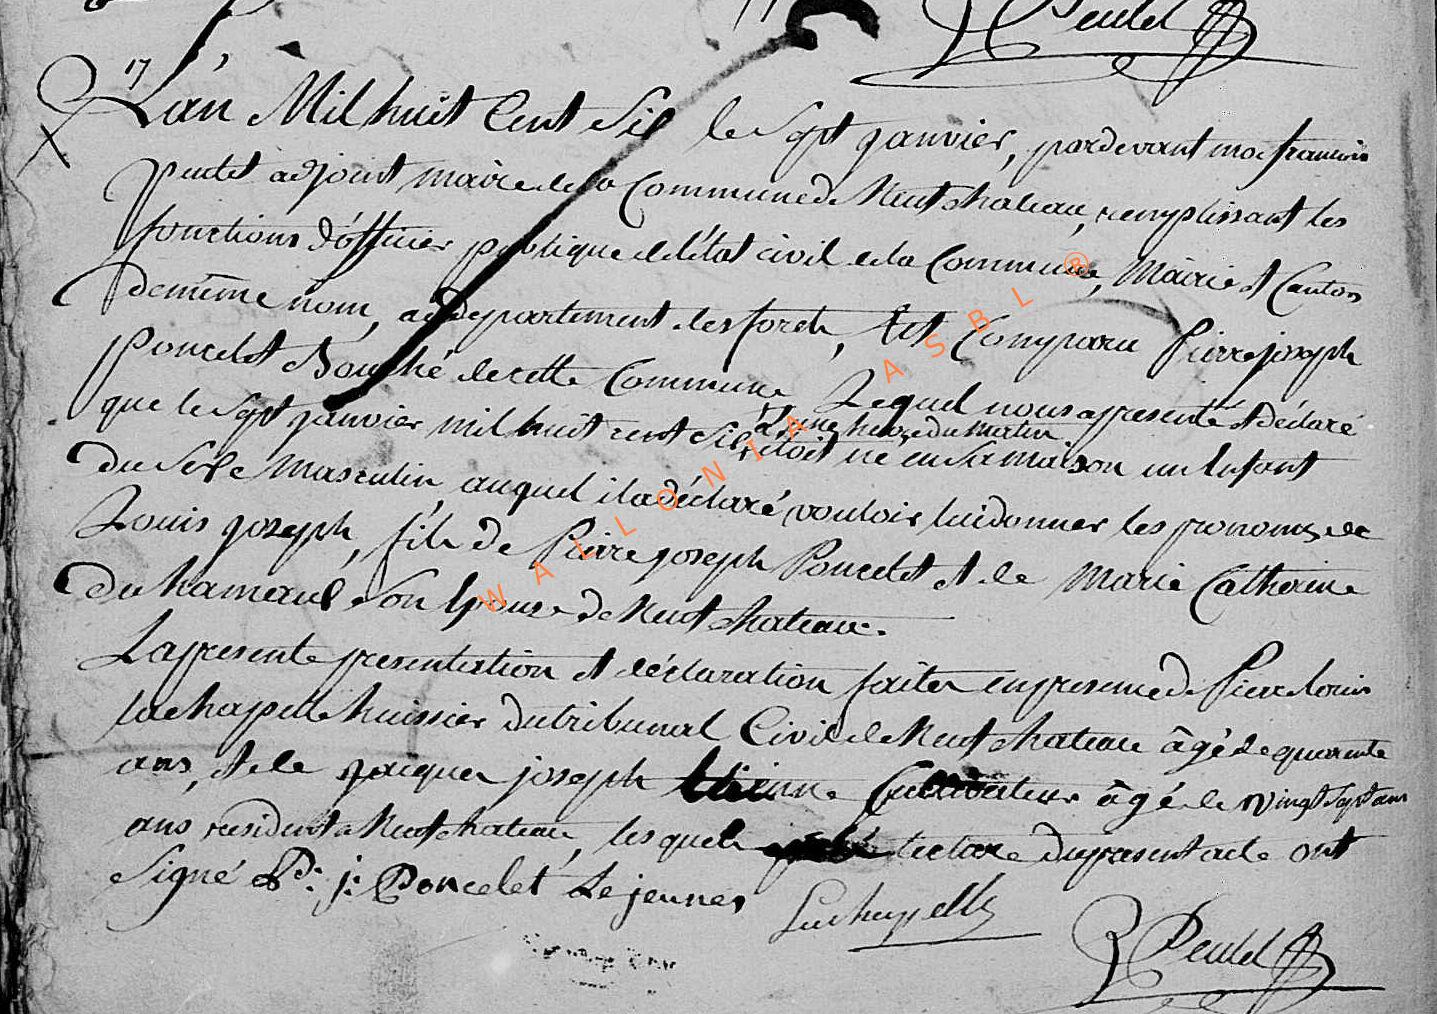 Peulet
17
L'an Mil huit Cent Six le Sept janvier, pardevant moi francois
Peulet adjoint maire de la Commune de Neufchateau, remplissant les
fonctions d'officier publique de l'état civil de la Commune, Mairie et Canton
de même nom, au departement des forets, Est Comparu Pierre joseph
Poncelet Bouché de cette Commune Lequel nous a presenté et déclaré
que le Sept janvier mil huit cent Six, etoit né en sa maison un Enfant
à une heure du matin
du Sexe Masculin, auquel il a déclaré vouloir lui donner les prenoms de
Louis joseph, fils de Pierre joseph Poncelet et de Marie Catherine
Duhameaux son Epouse de Neufchateau.
La presente presentation et déclaration faites en presence de Pierre Louis
Lachapelle huissier du tribunal Civil de Neufchateau âgé de quarante
ans, et de Jacques joseph Etienne Cultivateur âgé de vingt Sept ans
ans resident a Neufchateau, lesquels lecture du present acte ont
Signé P: j: Poncelet Le jeune Lachapelle
Peulet
WALLONIA ASBL ®